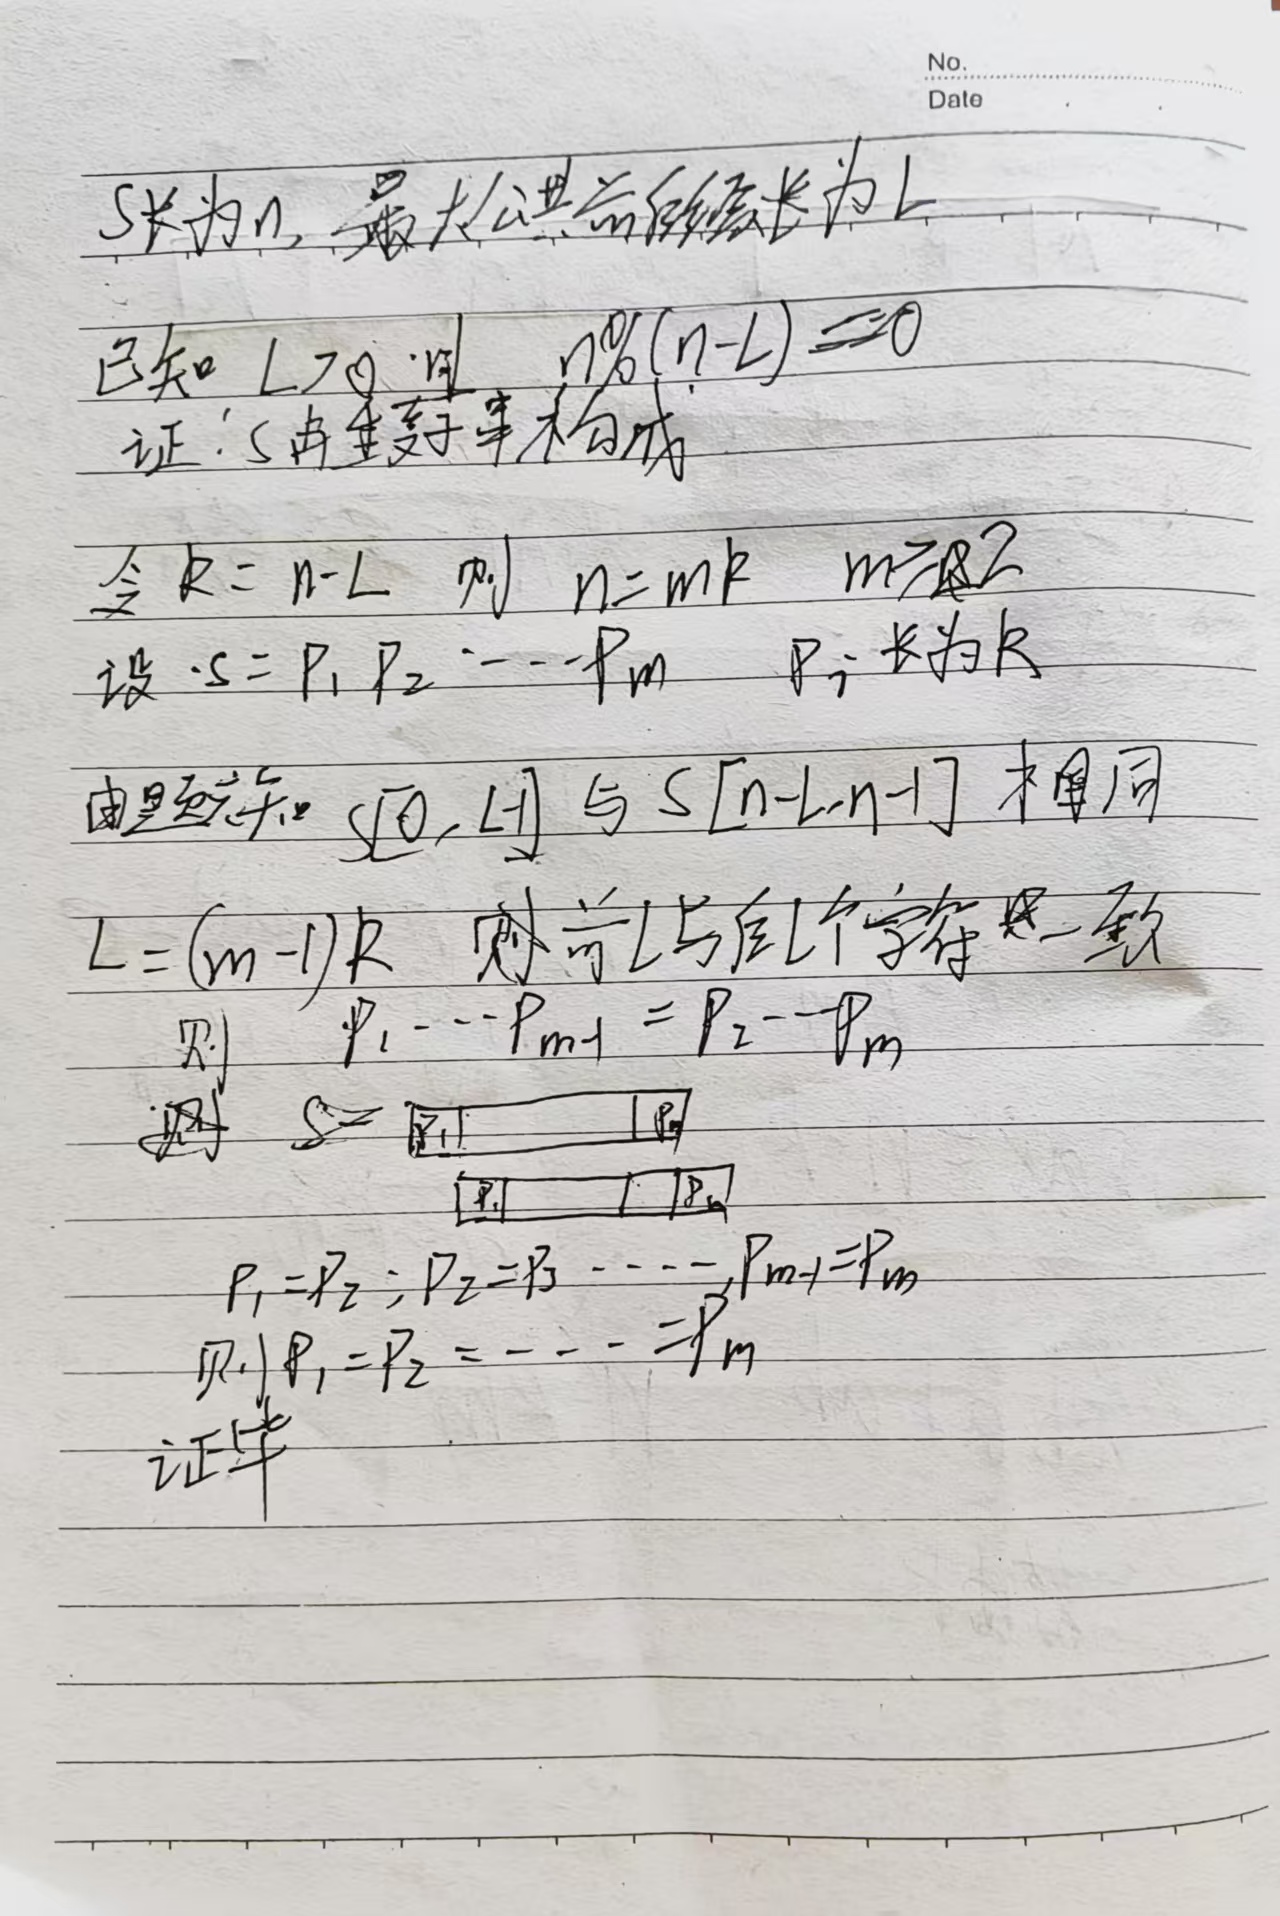 No.
Date
S长为n,最大公共前后缀长为L
已知 L>0 且 n%(n-L)==0
证:S由重复子串构成
令 k=n-L 则 n=mk m≥2
设 S=P₁P₂----Pₘ Pᵢ长为k
由题意知 S[0,L-1]与S[n-L,n-1]相同
L=(m-1)k 则前L与后L个字符一致
则 P₁---Pₘ₋₁=P₂---Pₘ
则 S= P₁ Pₘ
P₁ Pₘ
P₁=P₂;P₂=P₃-----,Pₘ₋₁=Pₘ
则P₁=P₂=----=Pₘ
证毕